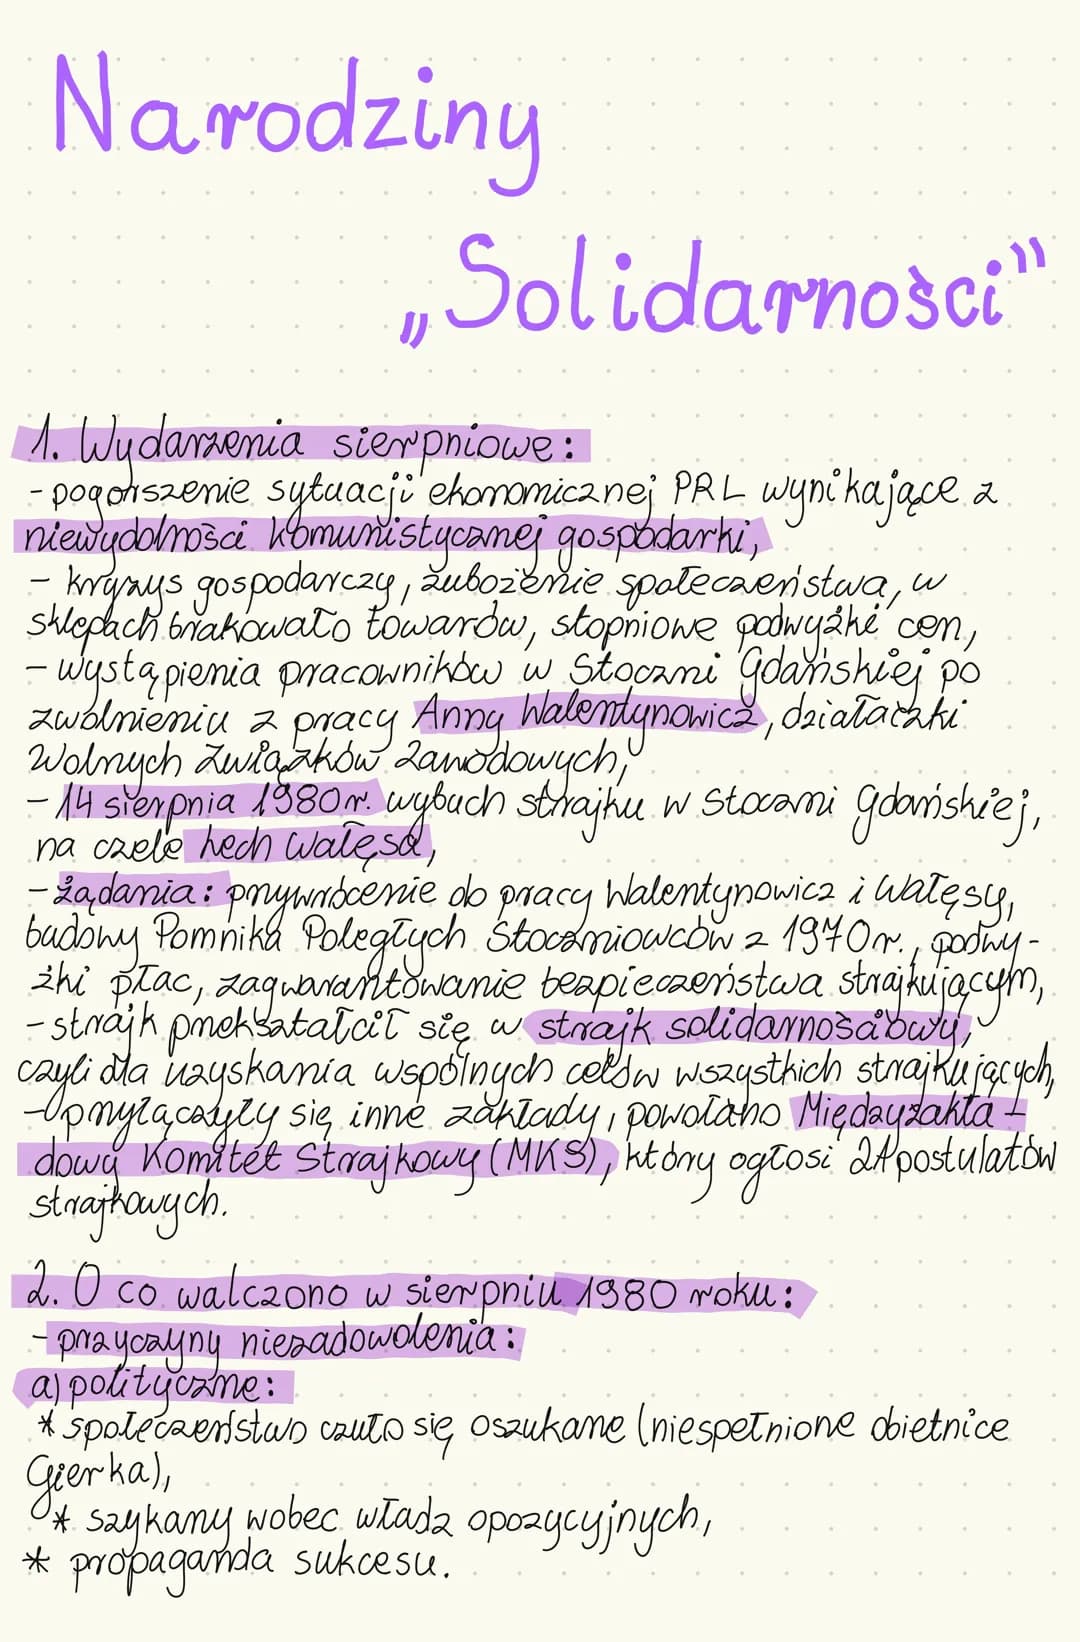 Narodziny
„Solidarności"
1. Wydarzenia sierpniowe:
- pogorszenie sytuacji ekonomicznej PRL wynikające z
niewydolności komunistycznej gospodarki,
- kryzys gospodarczy, zubożenie społeczeństwa, w
sklepach brakowało towarów, stopniowe podwyżki cen,
- wystąpienia pracowników w Stoczni Gdańskiej po
zwolnieniu z pracy Anny Walentynowicz, działaczki
Wolnych Związków Zawodowych,
- 14 sierpnia 1980r. wybuch strajku w Stoczni Gdańskiej,
na czele Lech Wałęsa,
- żądania: przywrócenie do pracy Walentynowicz i Wałęsy,
budowy Pomnika Poległych Stoczniowców z 1970r., podwy-
żki płac, zagwarantowanie bezpieczeństwa strajkującym,
- strajk przekształcił się w strajk solidarnościowy,
czyli dla uzyskania wspólnych celów wszystkich strajkujących,
- przyłączyły się inne zakłady, powołano Międzyzakła-
dowy Komitet Strajkowy (MKS), który ogłosi 21 postulatów
strajkowych.
2. O co walczono w sierpniu 1980 roku:
- przyczyny niezadowolenia:
a) polityczne:
* społeczeństwo czuło się oszukane (niespełnione obietnice
Gierka),
* szykany wobec władz opozycyjnych,
* propaganda sukcesu.